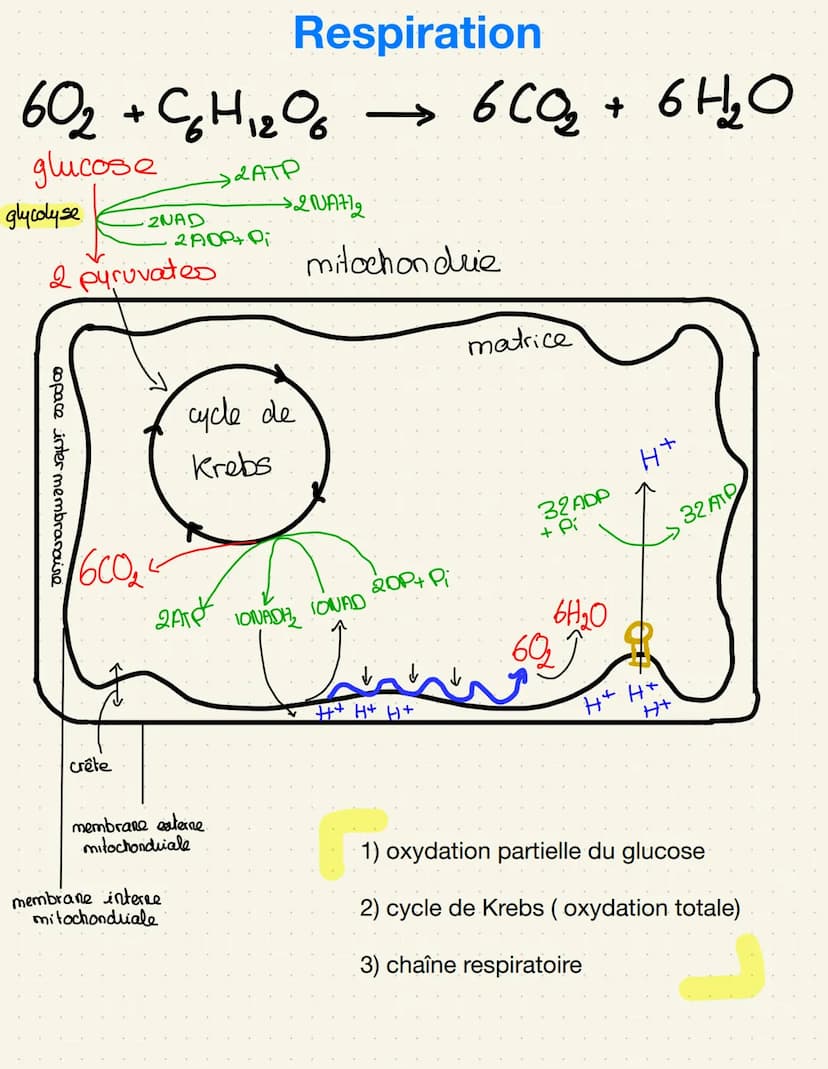 Respiration
6O₂ + C₆H₁₂O₆ → 6CO₂ + 6H₂O
glucose
2ATP
glycolyse
2NAH₂
2NAD
2ADP+Pi
2 pyruvates
mitochondrie
matrice
espace inter membranaire
cycle de
Krebs
H⁺
32ADP
+ Pi
32ATP
6CO₂
2ATP
10NADH₂
10NAD
2DP+Pi
6O₂
6H₂O
H⁺ H⁺ H⁺
H⁺ H⁺
H⁺
crête
membrane externe
mitochondriale
membrane interne
mitochondriale
1) oxydation partielle du glucose
2) cycle de Krebs ( oxydation totale)
3) chaîne respiratoire